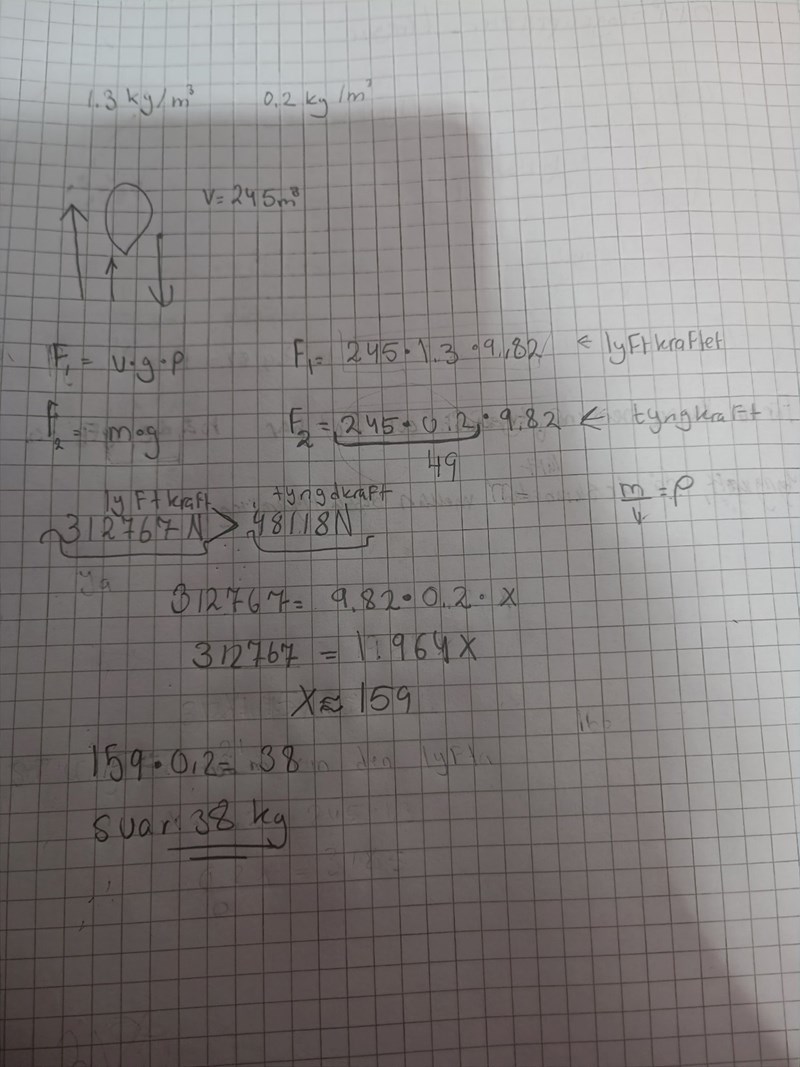 1.3 kg/m³ 0.2 kg/m³
V = 245m³
F₁ = v·g·ρ F₁ = 245·1.3·9.82 ← lyftkraftet
F₂ = m·g F₂ = 245·0.2·9.82 ← tyngkraft
49
lyftkraft tyngdkraft m/v = ρ
312767 N > 48118 N
312767 = 9.82·0.2·x
312767 = 1.964x
x ≈ 159
159·0.2 = 38
svar: 38 kg